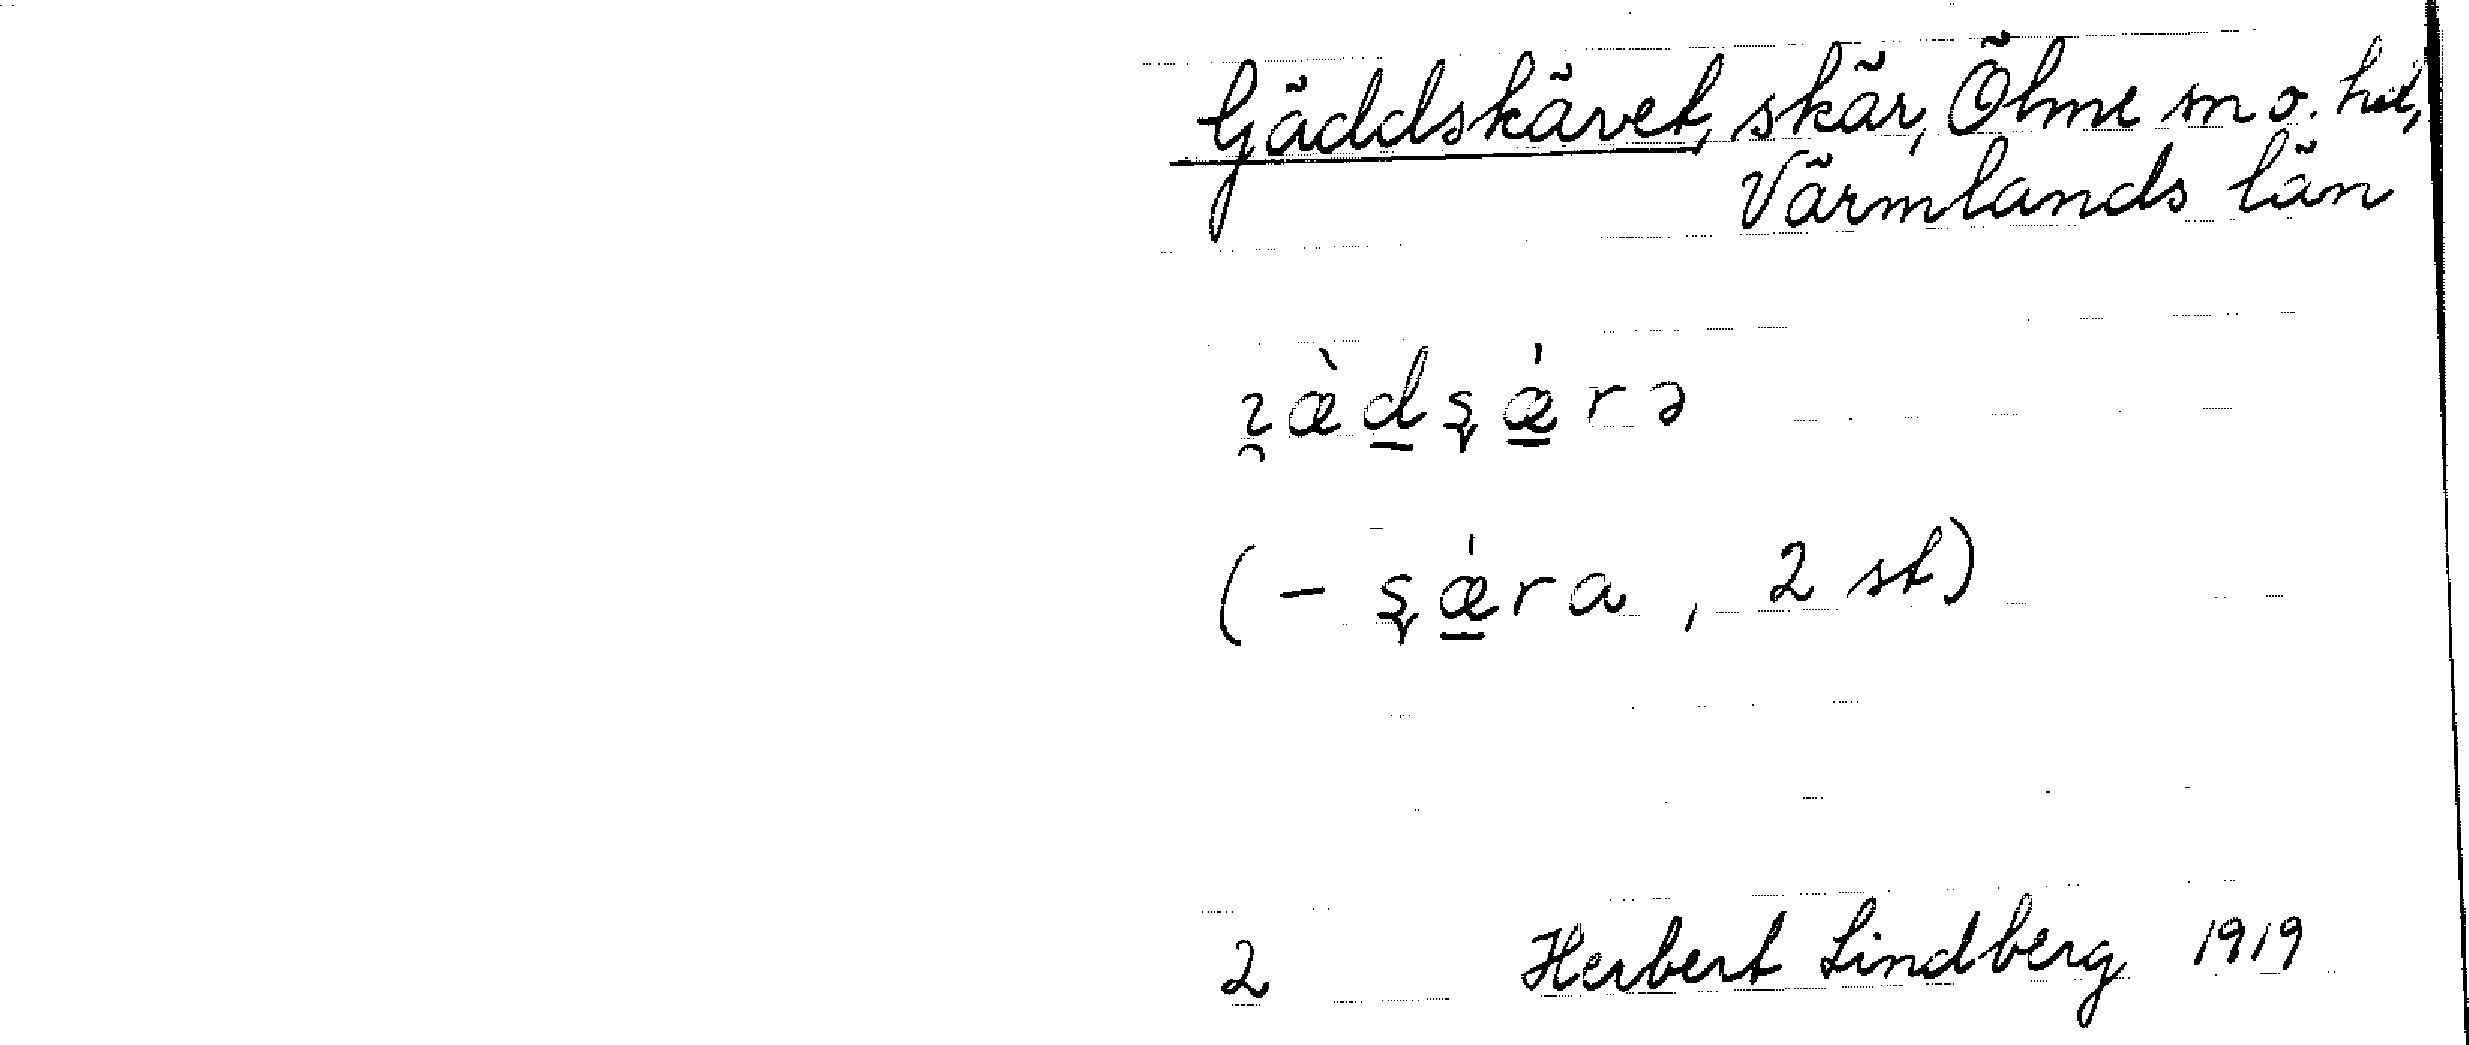 Gäddskäret, skär, Ölme sn o. hd,
Värmlands län
(- , 2 st)
2 Herbert Lindberg 1919